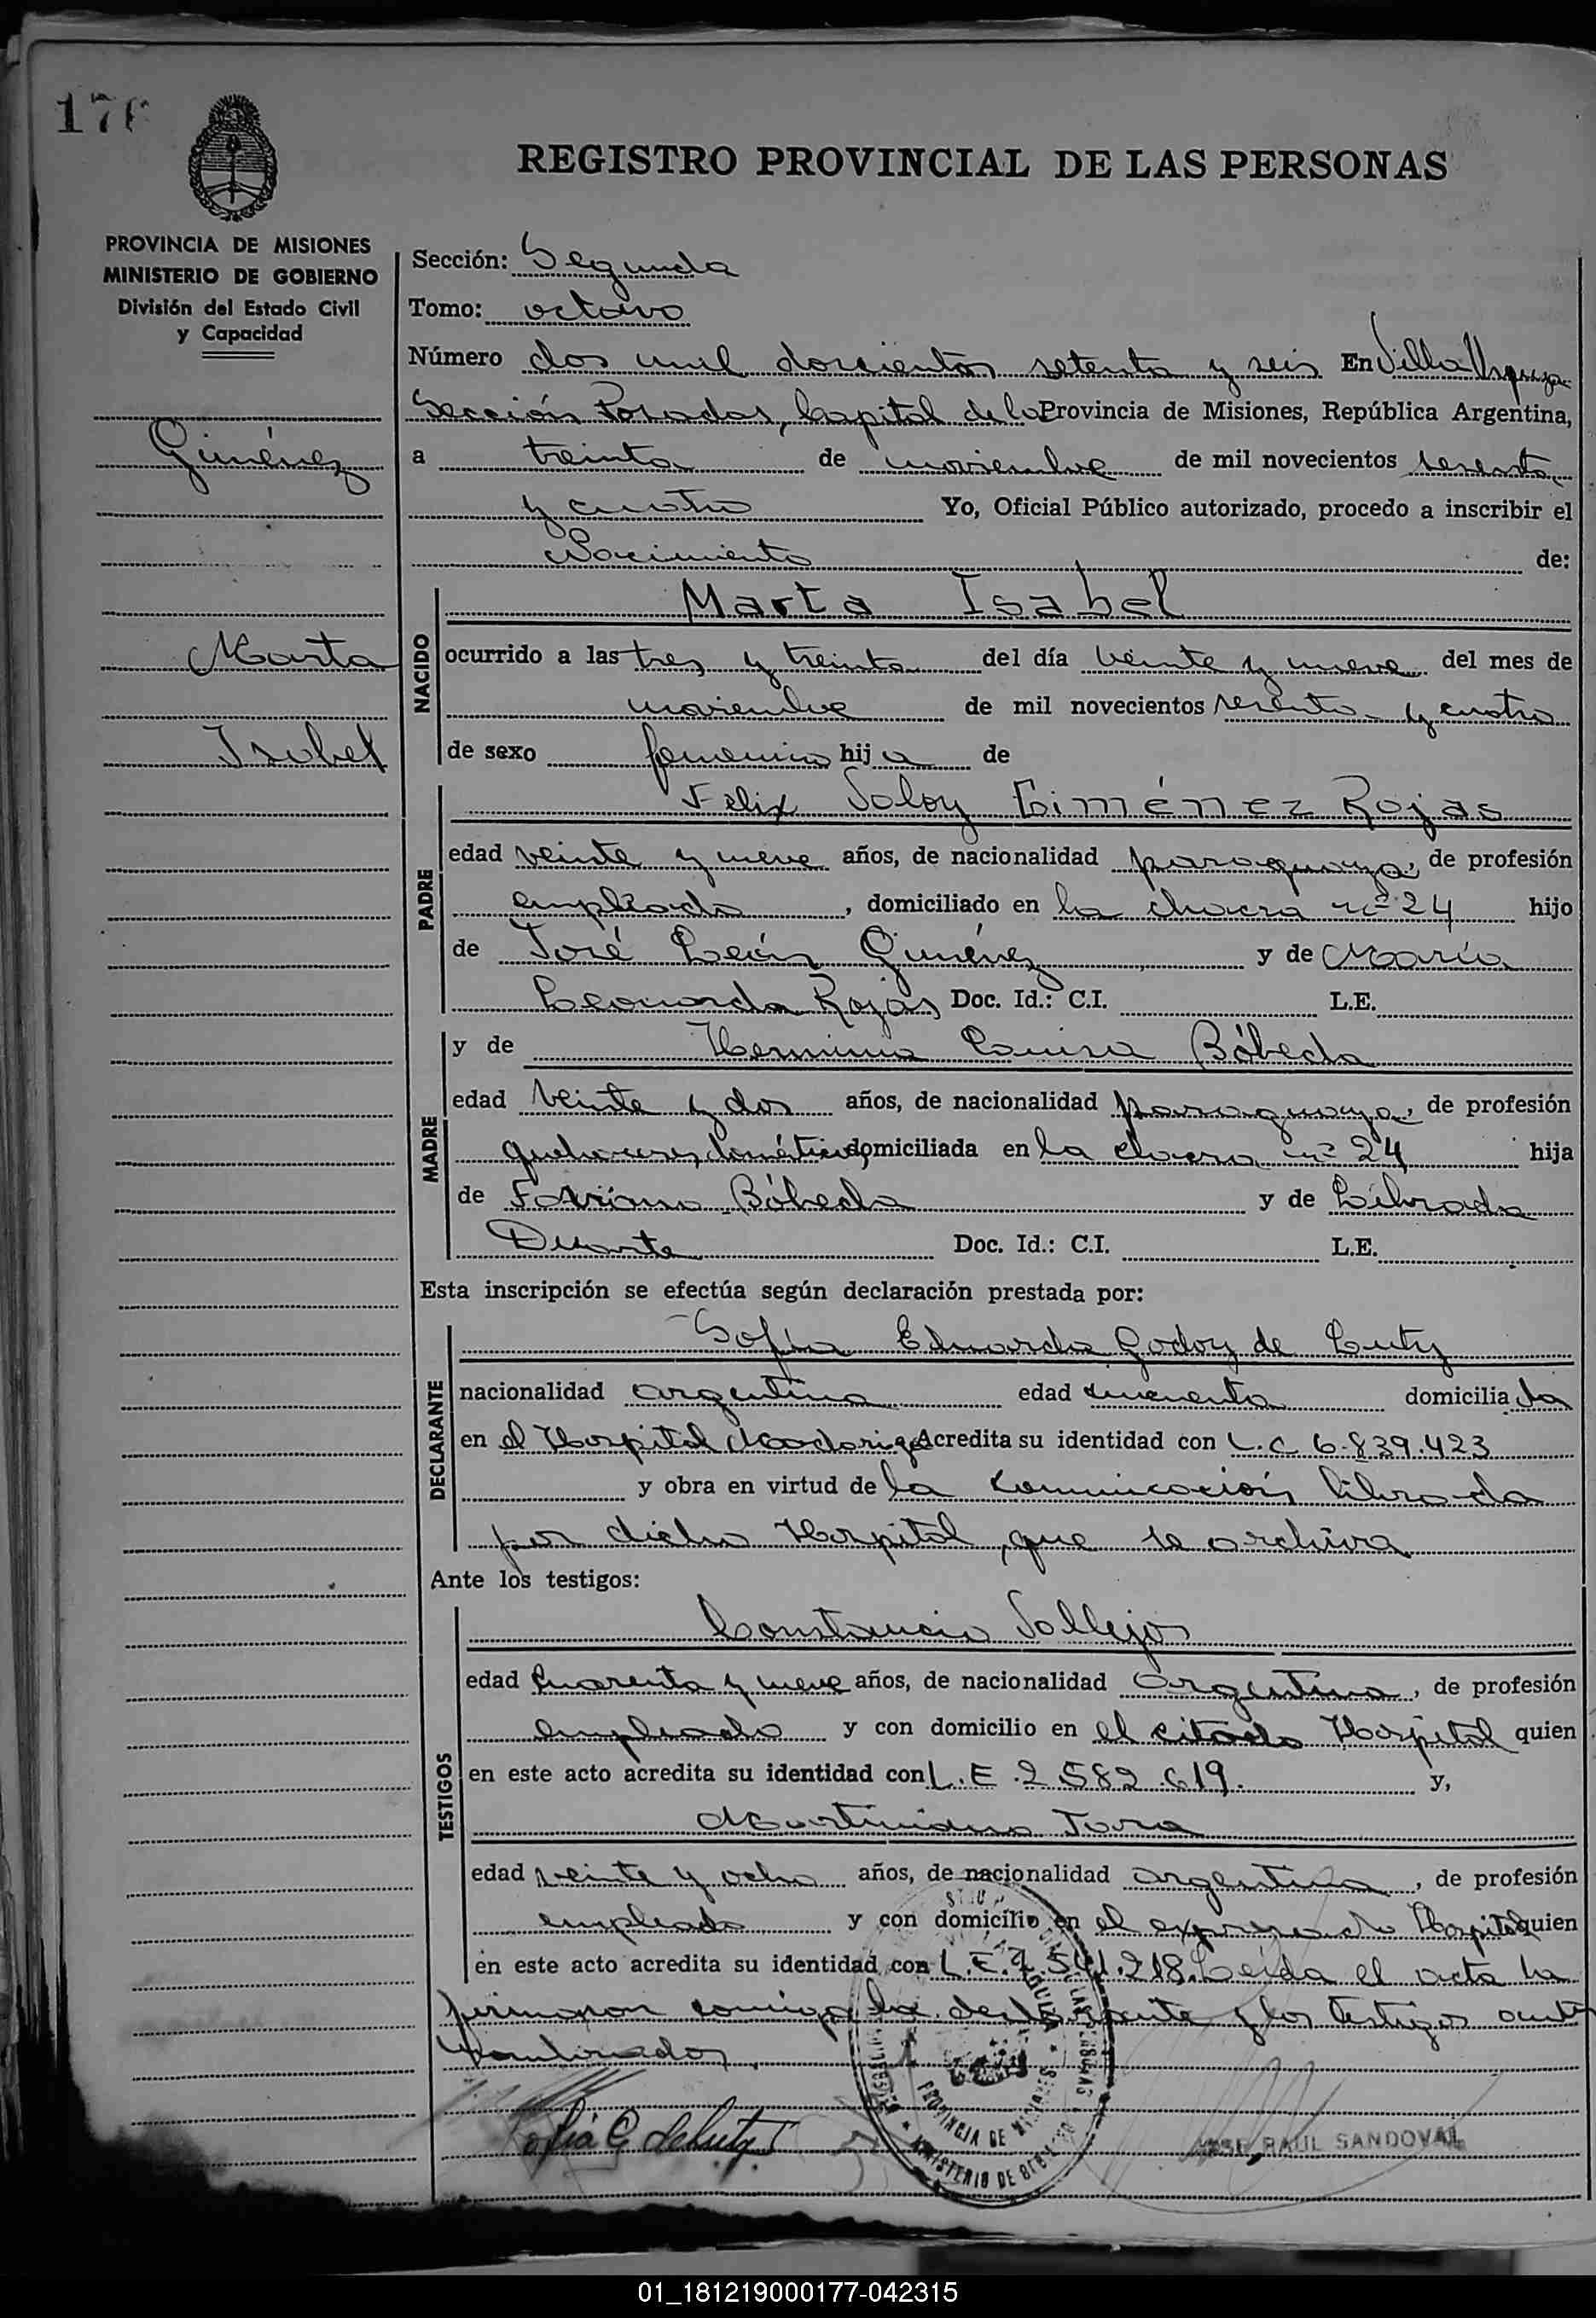 176
REGISTRO PROVINCIAL DE LAS PERSONAS
PROVINCIA DE MISIONES
MINISTERIO DE GOBIERNO
División del Estado Civil
y Capacidad
Giménez
Marta
Isabel
Sección: Segunda
Tomo: octavo
Número dos mil doscientos setenta y seis En Villa Urquiza
Sección Posadas, Capital de la Provincia de Misiones, República Argentina,
a treinta de noviembre de mil novecientos sesenta
y cuatro Yo, Oficial Público autorizado, procedo a inscribir el
Nacimiento de:
NACIDO
Marta Isabel
ocurrido a las tres y treinta del día veinte y nueve del mes de
noviembre de mil novecientos sesenta y cuatro
de sexo femenino hij a de
PADRE
Felix Giménez Rojas
edad veinte y nueve años, de nacionalidad paraguaya, de profesión
empleado, domiciliado en la chacra nº 24 hijo
de José León Giménez y de María
Leonarda Rojas Doc. Id.: C.I. L.E.
MADRE
y de Herminia Luisa Bóbeda
edad veinte y dos años, de nacionalidad paraguaya, de profesión
quehaceres domésticos, domiciliada en la chacra nº 24 hija
de Bóbeda y de Librada
Duarte Doc. Id.: C.I. L.E.
Esta inscripción se efectúa según declaración prestada por:
DECLARANTE
Sofía Eduarda Godoy de Luty
nacionalidad argentina edad cincuenta domicilia da
en el Hospital Madariaga Acredita su identidad con L.C 6.839.423
y obra en virtud de la comunicación librada
por dicho Hospital, que se archiva
Ante los testigos:
TESTIGOS
Constancio Vallejos
edad cuarenta y nueve años, de nacionalidad argentina, de profesión
empleado y con domicilio en el citado Hospital quien
en este acto acredita su identidad con L.E. 2.582.619. y,
Martiniano
edad veinte y ocho años, de nacionalidad argentina, de profesión
empleado y con domicilio en el expresado Hospital quien
en este acto acredita su identidad con L.E. 7.541.218. Leída el acta la
firmaron conmigo la declarante y los testigos ante
nombrados.
PROVINCIA DE MISIONES
MINISTERIO DE GOBIERNO
Sofía G de Luty
JOSE RAUL SANDOVAL
01_181219000177-042315